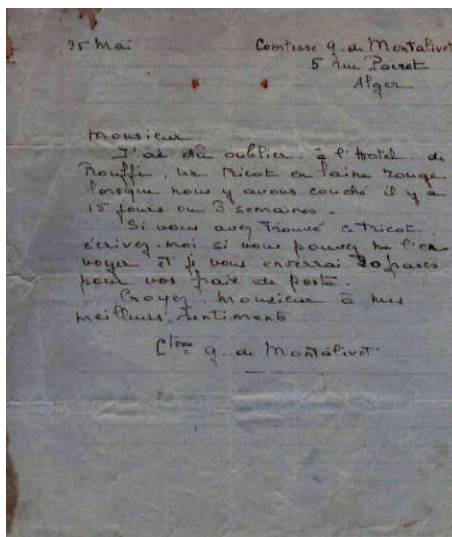 25 Mai
Comtesse G. de Montalivet
5 rue Poiret
Alger.
Monsieur.
J'ai dû oublier à l'hotel de
Rouffi, un tricot en laine rouge
lorsque nous y avons couché il y a
15 jours ou 3 semaines.
Si vous avez trouvé ce tricot.
écrivez-moi si vous pouvez me l'en
voyer et je vous enverrai 20 francs
pour vos frais de poste.
Croyez Monsieur à mes
meilleurs sentiments
Ctesse G. de Montalivet.